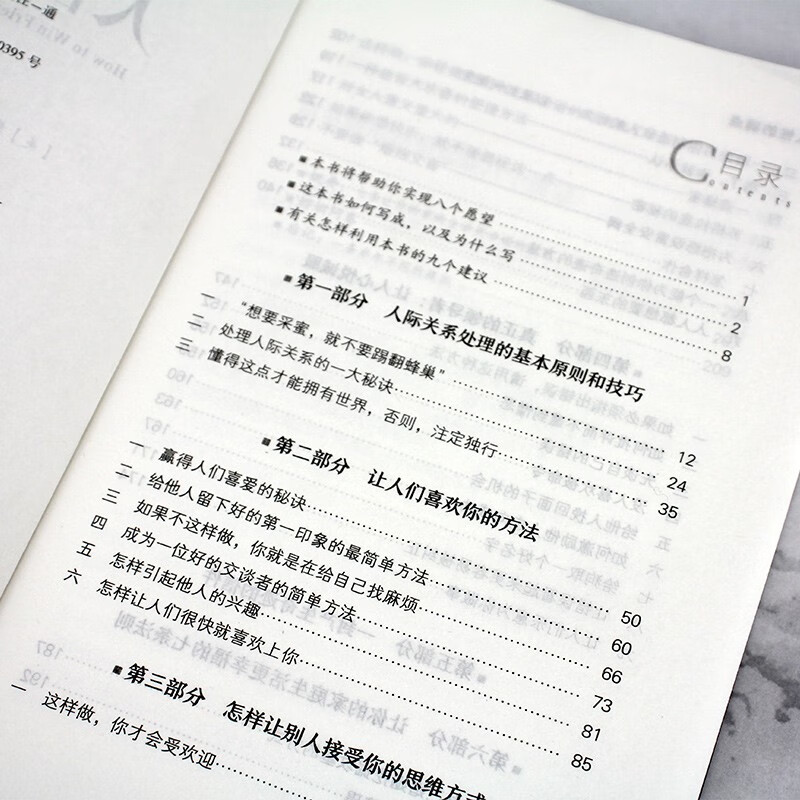 目录
Contents
■本书将帮助你实现八个愿望……1
■这本书如何写成，以及为什么写……2
■有关怎样利用本书的九个建议……8
■第一部分 人际关系处理的基本原则和技巧
一 “想要采蜜，就不要踢翻蜂巢”……12
二 处理人际关系的一大秘诀……24
三 懂得这点才能拥有世界，否则，注定独行……35
■第二部分 让人们喜欢你的方法
一 赢得人们喜爱的秘诀……50
二 给他人留下好的第一印象的最简单方法……60
三 如果不这样做，你就是在给自己找麻烦……66
四 成为一位好的交谈者的简单方法……73
五 怎样引起他人的兴趣……81
六 怎样让人们很快就喜欢上你……85
■第三部分 怎样让别人接受你的思维方式
一 这样做，你才会受欢迎……
0395 号